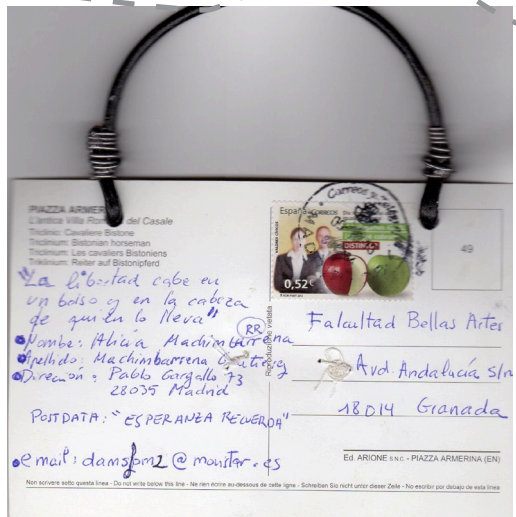 PIAZZA ARMERINA
L'antica Villa Romana del Casale
Triclinio: Cavaliere Bistone
Triclinium: Bistonian horseman
Triclinium: Les cavaliers Bistoniens
Triklinium: Reiter auf Bistonipferd
"La libertad cabe en
un bolso y en la cabeza
de quien lo lleva"
RR
Nombre: Alicia Machimbarrena
Apellido: Machimbarrena
Dirección: Pablo Gargallo 73
28035 Madrid
POSTDATA: "ESPERANZA RECUERDA"
email: @ movistar.es
Riproduzione vietata
España CORREOS
DISTINTA
0,52€
Correos
49
Falcultad Bellas Artes
Avd. Andalucía s/n
18014 Granada
Ed. ARIONE S.N.C. - PIAZZA ARMERINA (EN)
Non scrivere sotto questa linea - Do not write below this line - Ne rien écrire au-dessous de cette ligne - Schreiben Sie nicht unter dieser Zeile - No escribir por debajo de esta línea